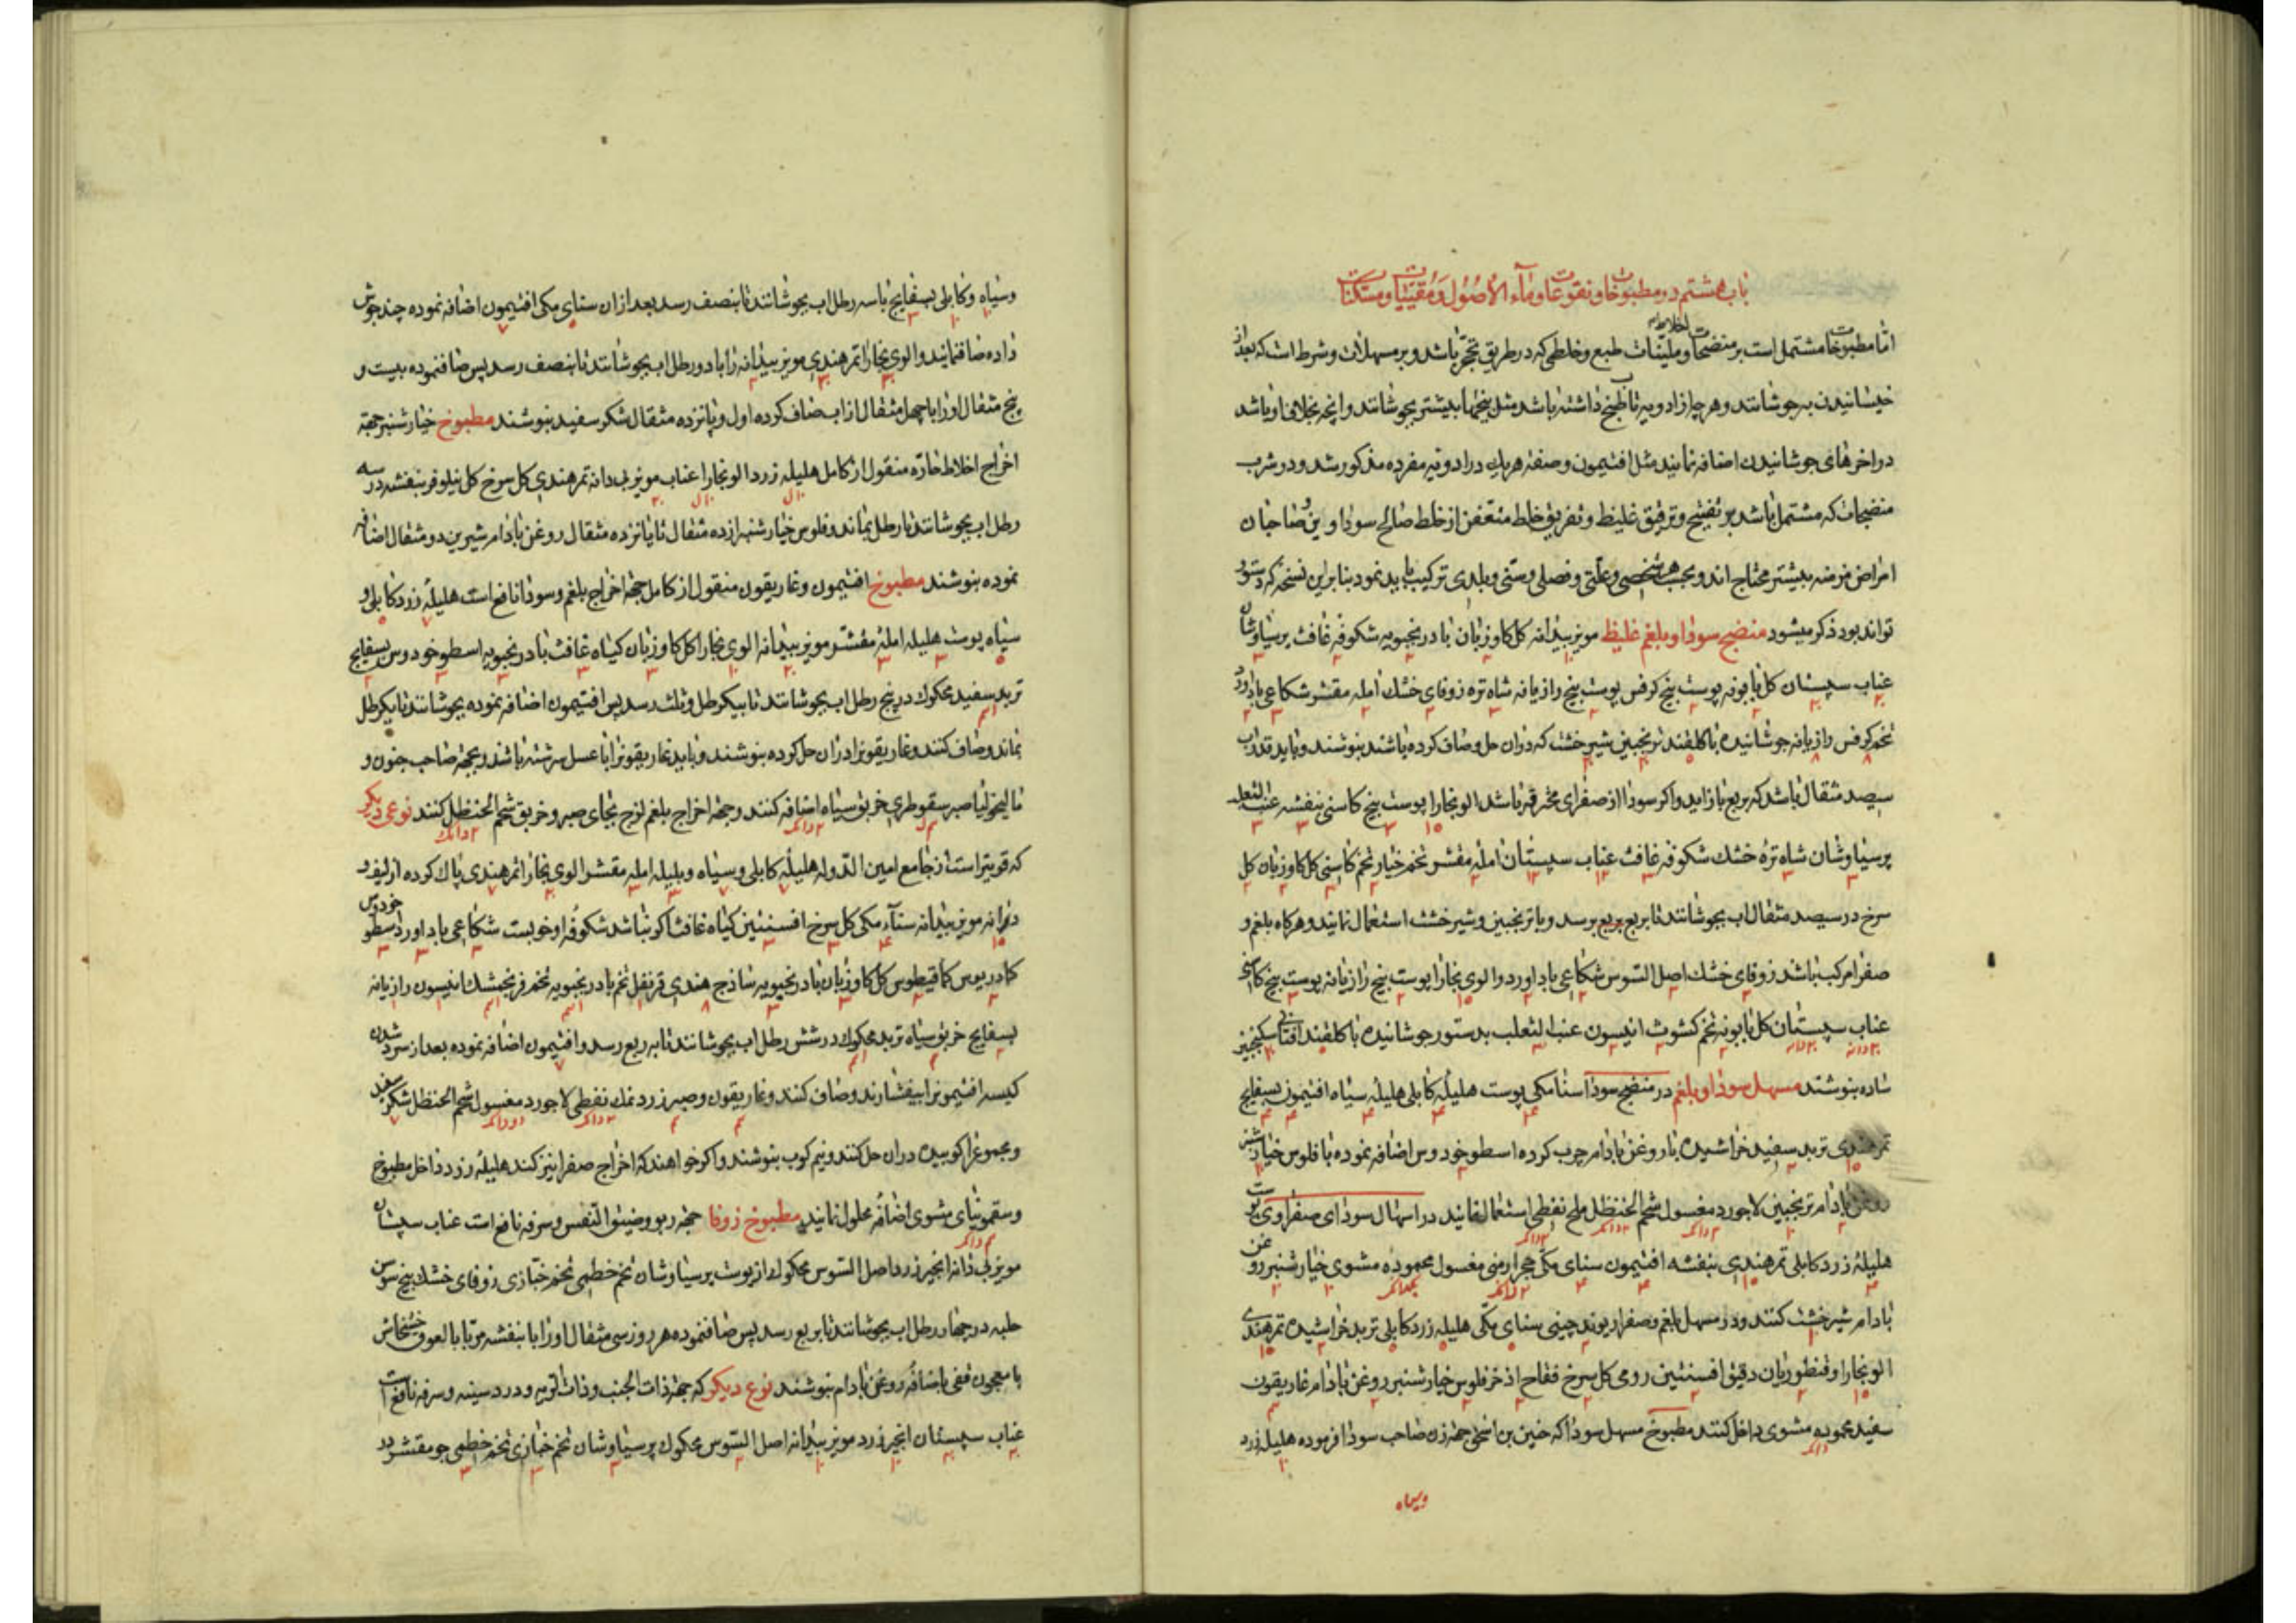 باب هشتم در مطبوخات و نقوعات و ماء الاصول و مقیئات و مسکنات
اما مطبوخات مشتمل است بر منضجات اخلاط و ملینات طبع و خلطی که در طریق تحجر باشد و بر مسهلات و شرط است که بعد از
خیسانیدن بجوشانند و هر چه از ادویه تاب طبخ داشته باشد مثل بیخها بیشتر بجوشانند و آنچه بخلاف او باشد
در اخرهای جوشانیدن اضافه نمایند مثل افتیمون و صفت هریک در ادویه مفرده مذکور شد و در شرب
منضجات که مشتمل باشد بر تفتیح و ترقیق غلیظ و تفریق خلط متعفن از خلط صالح سوداوین و صاحبان
امراض مزمنه بیشتر محتاج اند و بحسب هر شخصی و علتی و فصلی و سنی و بلدی ترکیب باید نمود بنابراین نسخه که دستور
تواند بود ذکر میشود منضج سودا و بلغم غلیظ مویز بیدانه کل کاوزبان بادرنجبویه شکوفه غافث پرسیاوشان
عناب سپستان کل بابونه پوست بیخ کرفس پوست بیخ رازیانه شاه تره زوفای خشک امله مقشر شکاعی باداورد
تخم کرفس رازیانه جوشانیده با کلقند ترنجبین شیرخشت که دران حل و صاف کرده باشند بنوشند و باید قدر اب
سیصد مثقال باشد که بربع باز اید و اکر سودا از صفرای محترقه باشد الو بخارا پوست بیخ کاسنی بنفشه عنب الثعلب
پرسیاوشان شاه تره خشک شکوفه غافث عناب سپستان امله مقشر تخم خیار تخم کاسنی کل کاوزبان کل
سرخ در سیصد مثقال اب بجوشانند تا بربع برسد و با ترنجبین و شیرخشت استعمال نمایند و هرکاه بلغم و
صفرا مرکب باشد زوفای خشک اصل السوس شکاعی باداورد الوی بخارا پوست بیخ رازیانه پوست بیخ کاسنی
عناب سپستان کل بابونه تخم کشوث انیسون عنب الثعلب بدستور جوشانیده با کلقند افتابی سکنجبین
ساده بنوشند مسهل سودا و بلغم در منضج سودا سنا مکی پوست هلیله کابلی هلیله سیاه افتیمون بسفایج
تمر هندی تربد سفید خراشیده با روغن بادام چرب کرده اسطوخودوس اضافه نموده با فلوس خیارشنبر
روغن بادام ترنجبین لاجورد مغسول شحم الحنظل ملح نفطی استعمال نمایند در اسهال سودای صفراوی پوست
هلیله زرد کابلی تمر هندی بنفشه افتیمون سنای مکی حجر ارمنی مغسول محموده مشوی خیارشنبر روغن
بادام شیرخشت کنند و در مسهل بلغم و صفرا ریوند چینی سنای مکی هلیله زرد کابلی تربد خراشیده تمر هندی
الو بخارا و قنطوریان دقیق افسنتین رومی کل سرخ فقاح اذخر فلوس خیارشنبر روغن بادام غاریقون
سفید محموده مشوی داخل کنند مطبوخ مسهل سودا که حنین بن اسحق جهة زن صاحب سودا فرموده هلیله زرد
وسیاه
وسیاه و کابلی بسفایج با سه رطل اب بجوشانند تا بنصف رسد بعد از ان سنای مکی افتیمون اضافه نموده چند جوش
داده صاف نمایند و الوی بخارا تمر هندی مویز بیدانه را با دو رطل اب بجوشانند تا بنصف رسد پس صاف نموده بیست و
پنج مثقال او را با چهل مثقال از اب صاف کرده اول و پانزده مثقال شکر سفید بنوشند مطبوخ خیارشنبر جهة
اخراج اخلاط حاره منقول از کامل هلیله زرد الو بخارا عناب مویز بی دانه تمر هندی کل سرخ کل نیلوفر بنفشه در سه
رطل اب بجوشانند تا رطلی بماند و فلوس خیارشنبر از ده مثقال تا پانزده مثقال روغن بادام شیرین دو مثقال اضافه
نموده بنوشند مطبوخ افتیمون و غاریقون منقول از کامل جهة اخراج بلغم و سودا نافع است هلیله زرد کابلی و
سیاه پوست هلیله امله مقشر مویز بیدانه الوی بخارا کل کاوزبان کیاه غافث بادرنجبویه اسطوخودوس بسفایج
تربد سفید محکوک در پنج رطل اب بجوشانند تا بیکرطل و ثلث رسد پس افتیمون اضافه نموده بجوشانند تا یکرطل
بماند و صاف کنند و غاریقونرا دران حل کرده بنوشند و باید غاریقونرا با عسل سرشته باشند و بجهة صاحب جنون و
مالیخولیا صبر سقوطری خربق سیاه اضافه کنند و جهة اخراج بلغم لزج بجای صبر و خربق شحم الحنظل کنند نوعی دیکر
که قویتر است از جامع امین الدوله هلیله کابلی و سیاه و بلیله امله مقشر الوی بخارا تمر هندی پاک کرده از لیف و
دانه مویز بیدانه سناء مکی کل سرخ افسنتین کیاه غافث اکر نباشد شکوفه او خوبست شکاعی باداورد اسطوخودوس
کمادریوس کمافیطوس کل کاوزبان بادرنجبویه ساذج هندی قرنفل تخم بادرنجبویه تخم فرنجمشک انیسون رازیانه
بسفایج خربق سیاه تربد محکوک در شش رطل اب بجوشانند تا بربع رسد و افتیمون اضافه نموده بعد از سرد شدن
کیسه افتیمونرا بیفشارند و صاف کنند و غاریقون و صبر زرد نمک نفطی لاجورد مغسول شحم الحنظل شکر سفید
و مجموع را کوبیده دران حل کنند و نیم کوب بنوشند و اکر خواهند که اخراج صفرا نیز کند هلیله زرد داخل مطبوخ
و سقمونیای مشوی اضافه محلول نمایند مطبوخ زوفا جهة ربو و ضیق النفس و سرفه نافع است عناب سپستان
مویز بی دانه انجیر زرد اصل السوس محکوک از پوست پرسیاوشان تخم خطمی تخم خبازی زوفای خشک بیخ سوسن
حلبه در چهار رطل اب بجوشانند تا بربع رسد پس صاف نموده هر روز سی مثقال او را با بنفشه مربا با لعوق خشخاش
یا معجون قفی باضافه روغن بادام بنوشند نوع دیکر که جهة ذات الجنب و ذات الریه و درد سینه و سرفه نافع است
عناب سپستان انجیر زرد مویز بیدانه اصل السوس محکوک پرسیاوشان تخم خبازی تخم خطمی جو مقشر در